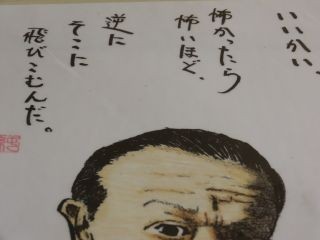 いいかい、
怖かったら
怖いほど、
逆に
そこに
飛びこむんだ。